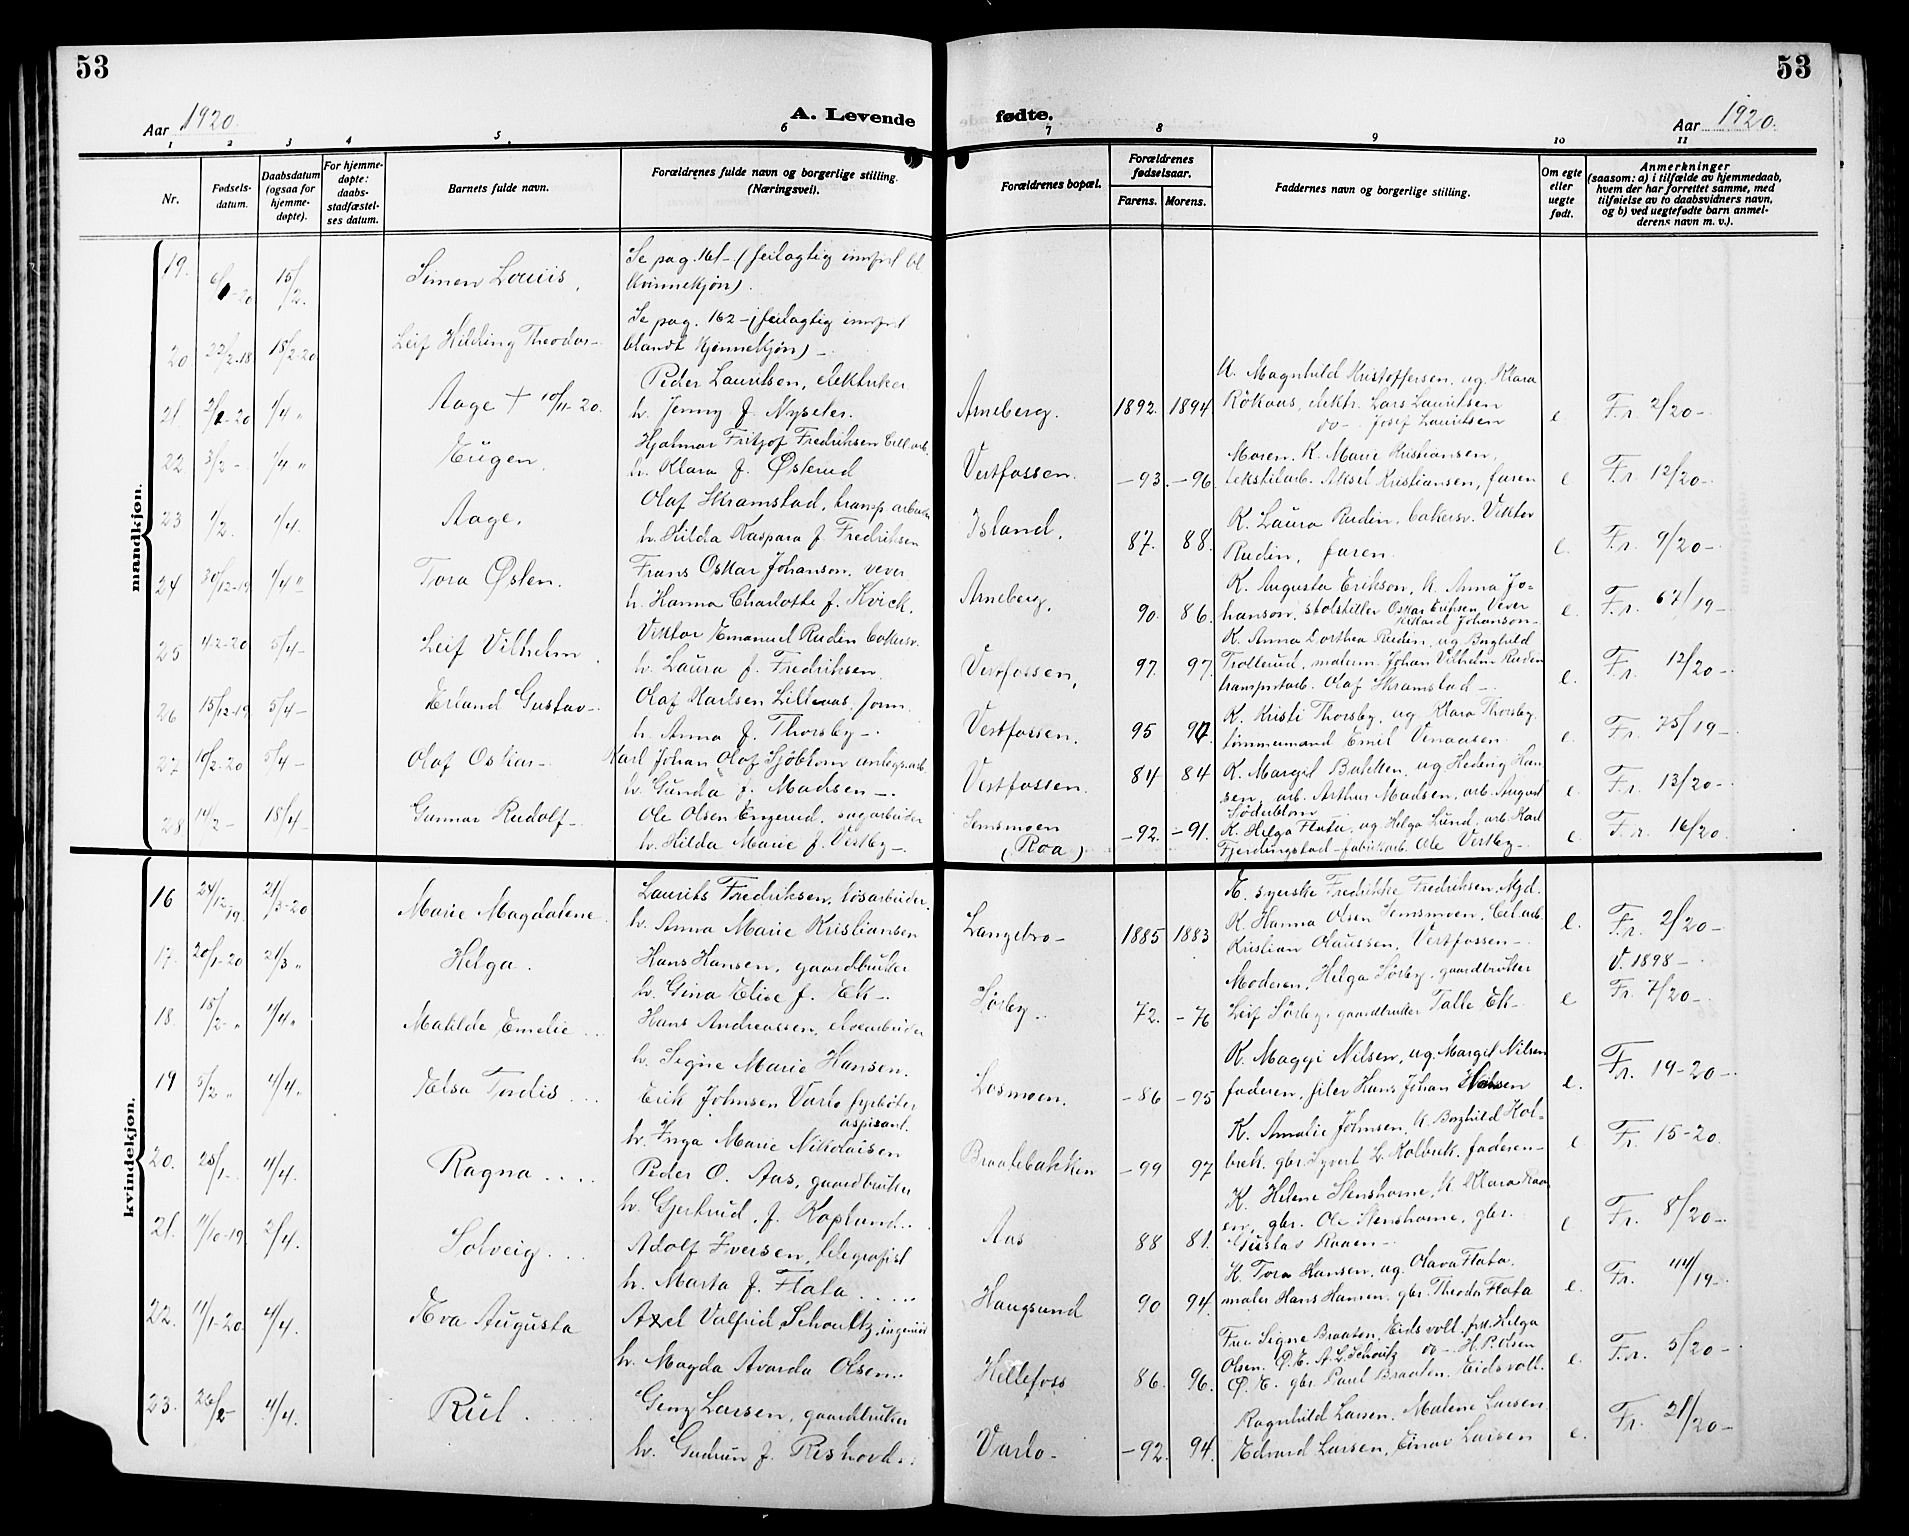 53
53
Aar 1920.
A. Levende
fødte.
Aar 1920.
1 2 3 4 5. 6 7 8 9 10 11
Nr.
Fødsels-
datum.
Daabsdatum
(ogsaa for
hjemme-
døpte).
For hjemme-
døpte:
daabs-
stadfæstel-
ses datum.
Barnets fulde navn.
Forældrenes fulde navn og borgerlige stilling.
(Næringsvei).
Forældrenes bopæl.
Forældrenes
fødselsaar.
Farens. Morens.
Faddernes navn og borgerlige stilling.
Om egte
eller
uegte
født.
Anmerkninger
(saasom: a) i tilfælde av hjemmedaab,
hvem der har forrettet samme, med
tilføielse av to daabsvidners navn,
og b) ved uegtefødte barn anmel-
derens navn m. v.).
mandkjøn.
19. 6/1-20 15/2. Simen Louiis, Se pag. 161- (feilagtig innført bl
kvinnekjøn).
20 22/2-18 18/2-20 Leif Hilding Theodor- Se pag. 162-(feilagtig innført
blandt kvinnekjøn)-
21. 2/1-20 4/4 " Aage + 10/11-20. Peder Lauritsen, elektriker
h. Jenny f. Nyseter. Arneberg. 1892. 1894. e. Fr. 2/20-
U. Magnhild Kristoffersen, ug. Klara
Rökaas, elektr. Lars Lauritsen
do- Josef Lauritsen
22 3/2- 4/4 " Eugen. Hjalmar Fritjof Fredriksen Cell.arb.
h. Klara f. Østerud Vestfossen. -93. -96. e Fr. 12/20-
Moren. K. Marie Kristiansen,
tekstilarb. Aksel Kristiansen, faren
23 1/2. 4/4. Aage. Olaf Skramstad, transp.arbeider
h. Hilda Kaspara f. Fredriksen Island. 87. 88. e. Fr. 9/20-
K. Laura Rudin, bokersv. Viktor
Rudin, faren.
24 30/12-19 4/4 " Tora Østen. Frans Oskar Johanson, vever
h. Hanna Charlotte f. Kvick. Arneberg. 90. 86. e. Fr. 67/19-
K. Augusta Erikson, U. Anna Jo-
hanson, stolstiller Oskar Eriksen, Vever
Rikard Johanson-
25 4-2-20 5/4- Leif Vilhelm. Viktor Emanuel Rudin bokersv.
h. Laura f. Fredriksen. Vestfossen, 97. 97. e. Fr. 12/20-
K. Anna Dorthea Rudin, ug Borghild
Trollerud, malerm. Johan Vilhelm Rudin
transportarb. Olaf Skramstad-
26 15/12-19 5/4- Erland Gustav- Olaf Karlsen Lilleaas, form.
h. Anna f. Thorsby-. Vestfossen. 95 97. e. Fr. 75/19-
K. Kristi Thorsby, ug Klara Thorsby.
tömmermand Emil Venaasen.
27 10/2-20 5/4- Olaf Oskar- Karl Johan Olaf Sjöblom anlegsarb.
h. Gunda f. Madsen-. Vestfossen. 84 84 e. Fr. 13/20-
K. Margit Bakken, ug Hedvig Han-
sen, arb. Arthur Madsen, arb. August
Söderblom
28 14/2- 18/4- Gunnar Rudolf- Ole Olsen Engerud, sagarbeider
h. Hilda Marie f. Vestby-. Semsmoen
(Roa) -92. -91. e. Fr. 16/20.
K. Helga Flata, ug Helga Lund, arb. Karl
Fjerdingstad- fabrikarb. Ole Vestby-
kvindekjøn.
16 24/12-19. 21/3-20 Marie Magdalene. Laurits Fredriksen, løsarbeider.
h. Anna Marie Kristiansen Langebro- 1885 1883 e. Fr. 2/20-
V. 1898-
E. syerske Fredrikke Fredriksen, Mjd.
K. Hanna Olsen Semsmoen, Cel.arb.
Kristian Olaussen, Vestfossen-
17. 20/1-20 21/3 " Helga. Hans Hansen, gaardbruker
h. Gina Elise f. Ek-. Sörby. 72. -76 e Fr. 7/20-
Moderen, Helga Sörby, gaardbruker
Leif Sörby, gaardbruker Talle Ek-
18. 15/2- " 4/4 " Matilde Emelie. Hans Andreassen, elvearbeider
h. Signe Marie Hansen. Losmoen. -86 -95 e. Fr. 19-20-
K. Maggi Nilsen, ug. Margit Nilsen
faderen, filer Hans Johan Nilsen
19 5/2 " 4/4. Elsa Tordis. Erik Johnsen Varlo fyrbøter
aspirant.
h. Inga Marie Nikolaisen Braatebakken -99 97 e Fr. 15-20.
K. Amalie Johnsen, U. Borghild Kol-
brek. gbr. Syvert L. Kolbrek, faderen-
20. 28/1-. 4/4. Ragna. Peder O. Aas, gaardbruker
h. Gjertrud, f. Kaplund. Aas 88 81. e Fr. 8/20-
K. Helene Stenshorne, U. Klara Raa-
en, gbr. Ole Stenshorne, gbr.
Gustav Raaen-
21. 11/10-19. 2/4. Solveig. Adolf Iversen, telegrafist
h. Marta f. Flata. Haugsund 90 94. e. Fr. 44/19-
K. Tora Hansen, ug. Olava Flata.
maler Hans Hansen. gbr. Theodor Flata
22. 11/1-20. 4/4. Eva Augusta Axel Valfrid Schoultz, ingeniør
h. Magda Avarda Olsen. Hellefoss 86. 96. e. Fr. 5/20-
Fru Signe Braaten, Eidsvoll. frk. Helga
Olsen. Ø.E. A.L. Schoultz do-. H.P. Olsen
Ø.E. gbr. Paul Braaten. Eidsvoll.
23. 26/2- 4/4. Rut. Genz Larsen, gaardbruker
h. Gudrun f. Reshovd. Varlo- -92. 94. e. Fr. 21/20-
Ragnhild Larsen. Malene Larsen
Edvard Larsen, Einar Larsen